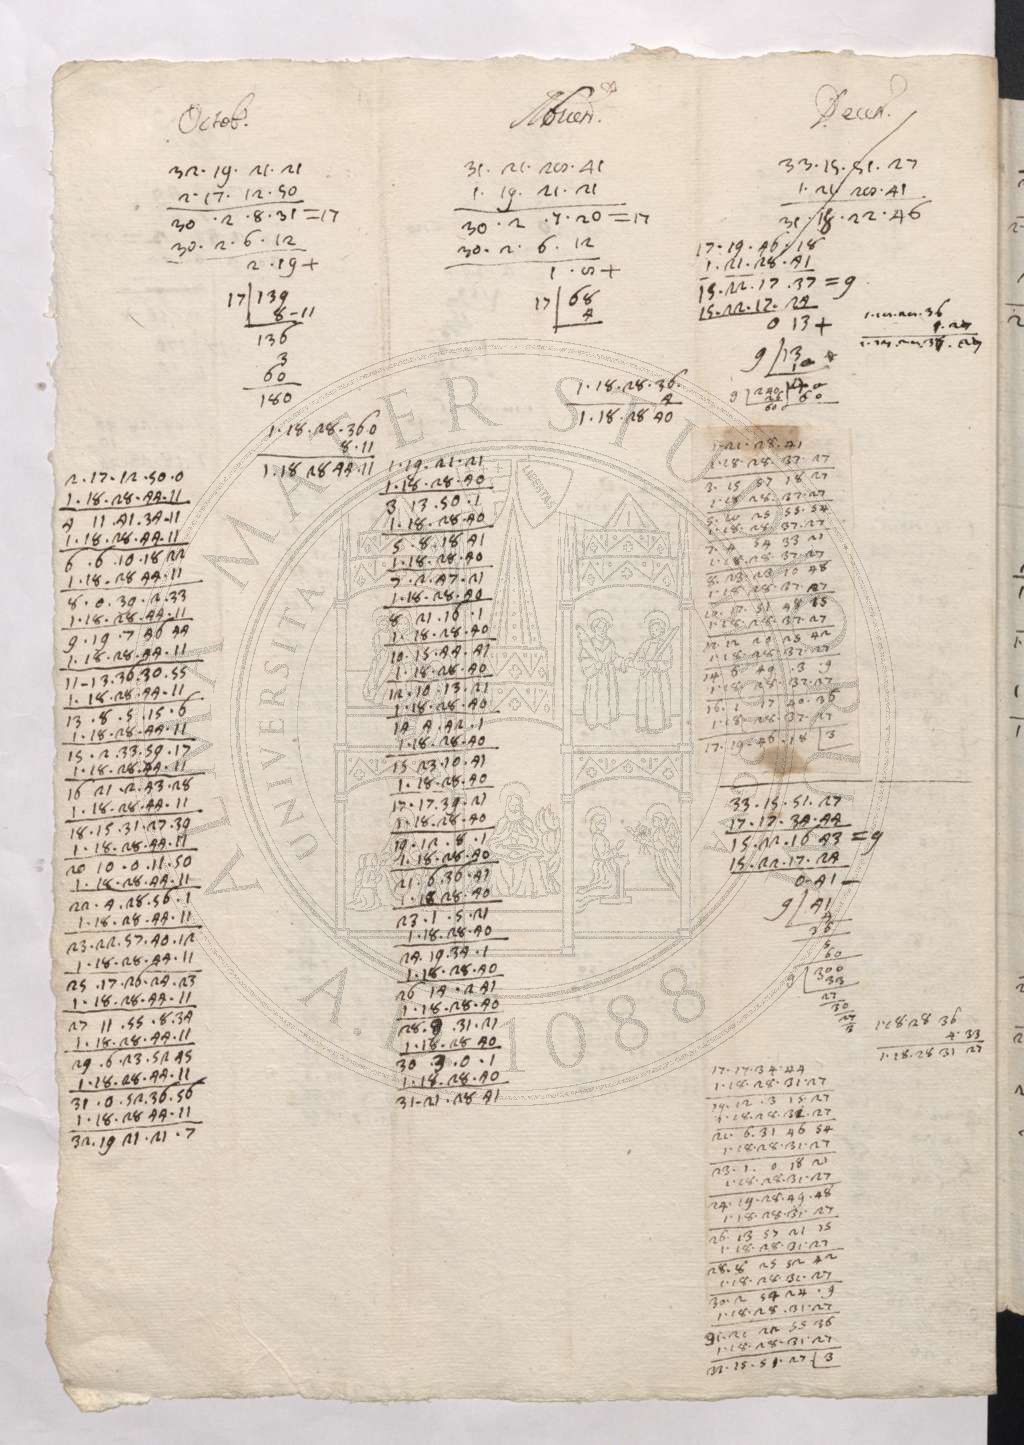 Octob.
32.19.21.21
2.17.12.50
30.2.8.31=17
30.2.6.12
2.19+
17|139
8-11
136
3
60
180
1.18.28.36 0
8.11
1.18 28 44.11
2.17.12.50.0
1.18.28.44.11
4 11.41.34.11
1.18.28.44.11
6.6.10.18 22
1.18.28 44.11
8.0.39.2.33
1.18.28.44.11
9.19.7 46 44
1.18.28.44.11
11-13.36.30.55
1.18.28.44.11
13.8.5.15.6
1.18.28.44.11
15.2.33.59.17
1.18.28.44.11
16 21.2.43.28
1.18.28.44.11
18.15.31.27.39
1.18.28.44.11
20 10.0.11.50
1.18.28.44.11
22.4.28.56.1
1.18.28.44.11
23.22.57.40.12
1.18.28.44.11
25.17.26.24.23
1.18.28.44.11
27 11.55.8.34
1.18.28.44.11
29.6.23.52 45
1.18.28.44.11
31.0.52.36.56
1.18.28 44.11
32.19 21.21.7
31.21.28.41
1.19.21.21
30.2.7.20=17
30.2.6.12
1.8+
17|68
4
1.18.28.36
4
1.18.28 40
1.19.21.21
1.18.28.40
3 13.50.1
1.18.28.40
5.8.18 41
1.18.28.40
7.2.47.21
1.18.28.40
8 21.16.1
1.18.28.40
10.15.44.41
1.18.28.40
12.10.13.21
1.18.28.40
14 4.42.1
1.18.28.40
15 23.10.41
1.18.28.40
17.17.39.21
1.18.28.40
19.12.8.1
1.18.28.40
21.6.36.41
1.18 28.40
23.1.5.21
1.18.28.40
24.19.34.1
1.18.28.40
26 14.2 41
1.18.28.40
28.8 31.21
1.18.28 40
30 3.0.1
1.18.28.40
31-21.28 41
33.15.51.27
1.21 28.41
31.18.22.46
17.19.46.18
1.21.28.41
15.22.17.37=9
15.22.17.24
0 13+
9|13
1.21.28.41
1.18.28.37.27
3.15 57 18 27
1.18 28.37.27
5.10 25 55.54
1.18.28 37.27
7.4 54 33 21
1.18.28.37.27
8.23 23 10 48
1.18.28.37.27
10.17.51 48 15
1.18.28.37.27
12.12 20 25 42
1.18.28.37.27
14 6 49.3.9
1.18.28.37.27
16.1 17 40.36
1.18.28.37.27
17.19.46.18|3
33.15.51.27
17.17.34.44
15.22.16 43=9
15.22.17.24
0.41-
9|41
4
36
5
60
9|300
33
27
30
27
3
1.18.28 36
4.33
1.18.28 31 27
17.17.34.44
1.18.28.31.27
19.12.3 15.27
1.18.28.31.27
21.6.31 46 54
1.18.28.31.27
23.1.0 18 21
1.18.28.31.27
24.19.28.49.48
1.18.28.31.27
26 13 57 21 15
1.18.28.31.27
28.8 25 52 42
1.18.28.31.27
30.2 54 24.9
1.18.28.31.27
31.21 22 55 36
1.18.28.31.27
33.15.51.27|3
ALMA MATER STUDIORUM
UNIVERSITA
A.D. 1088